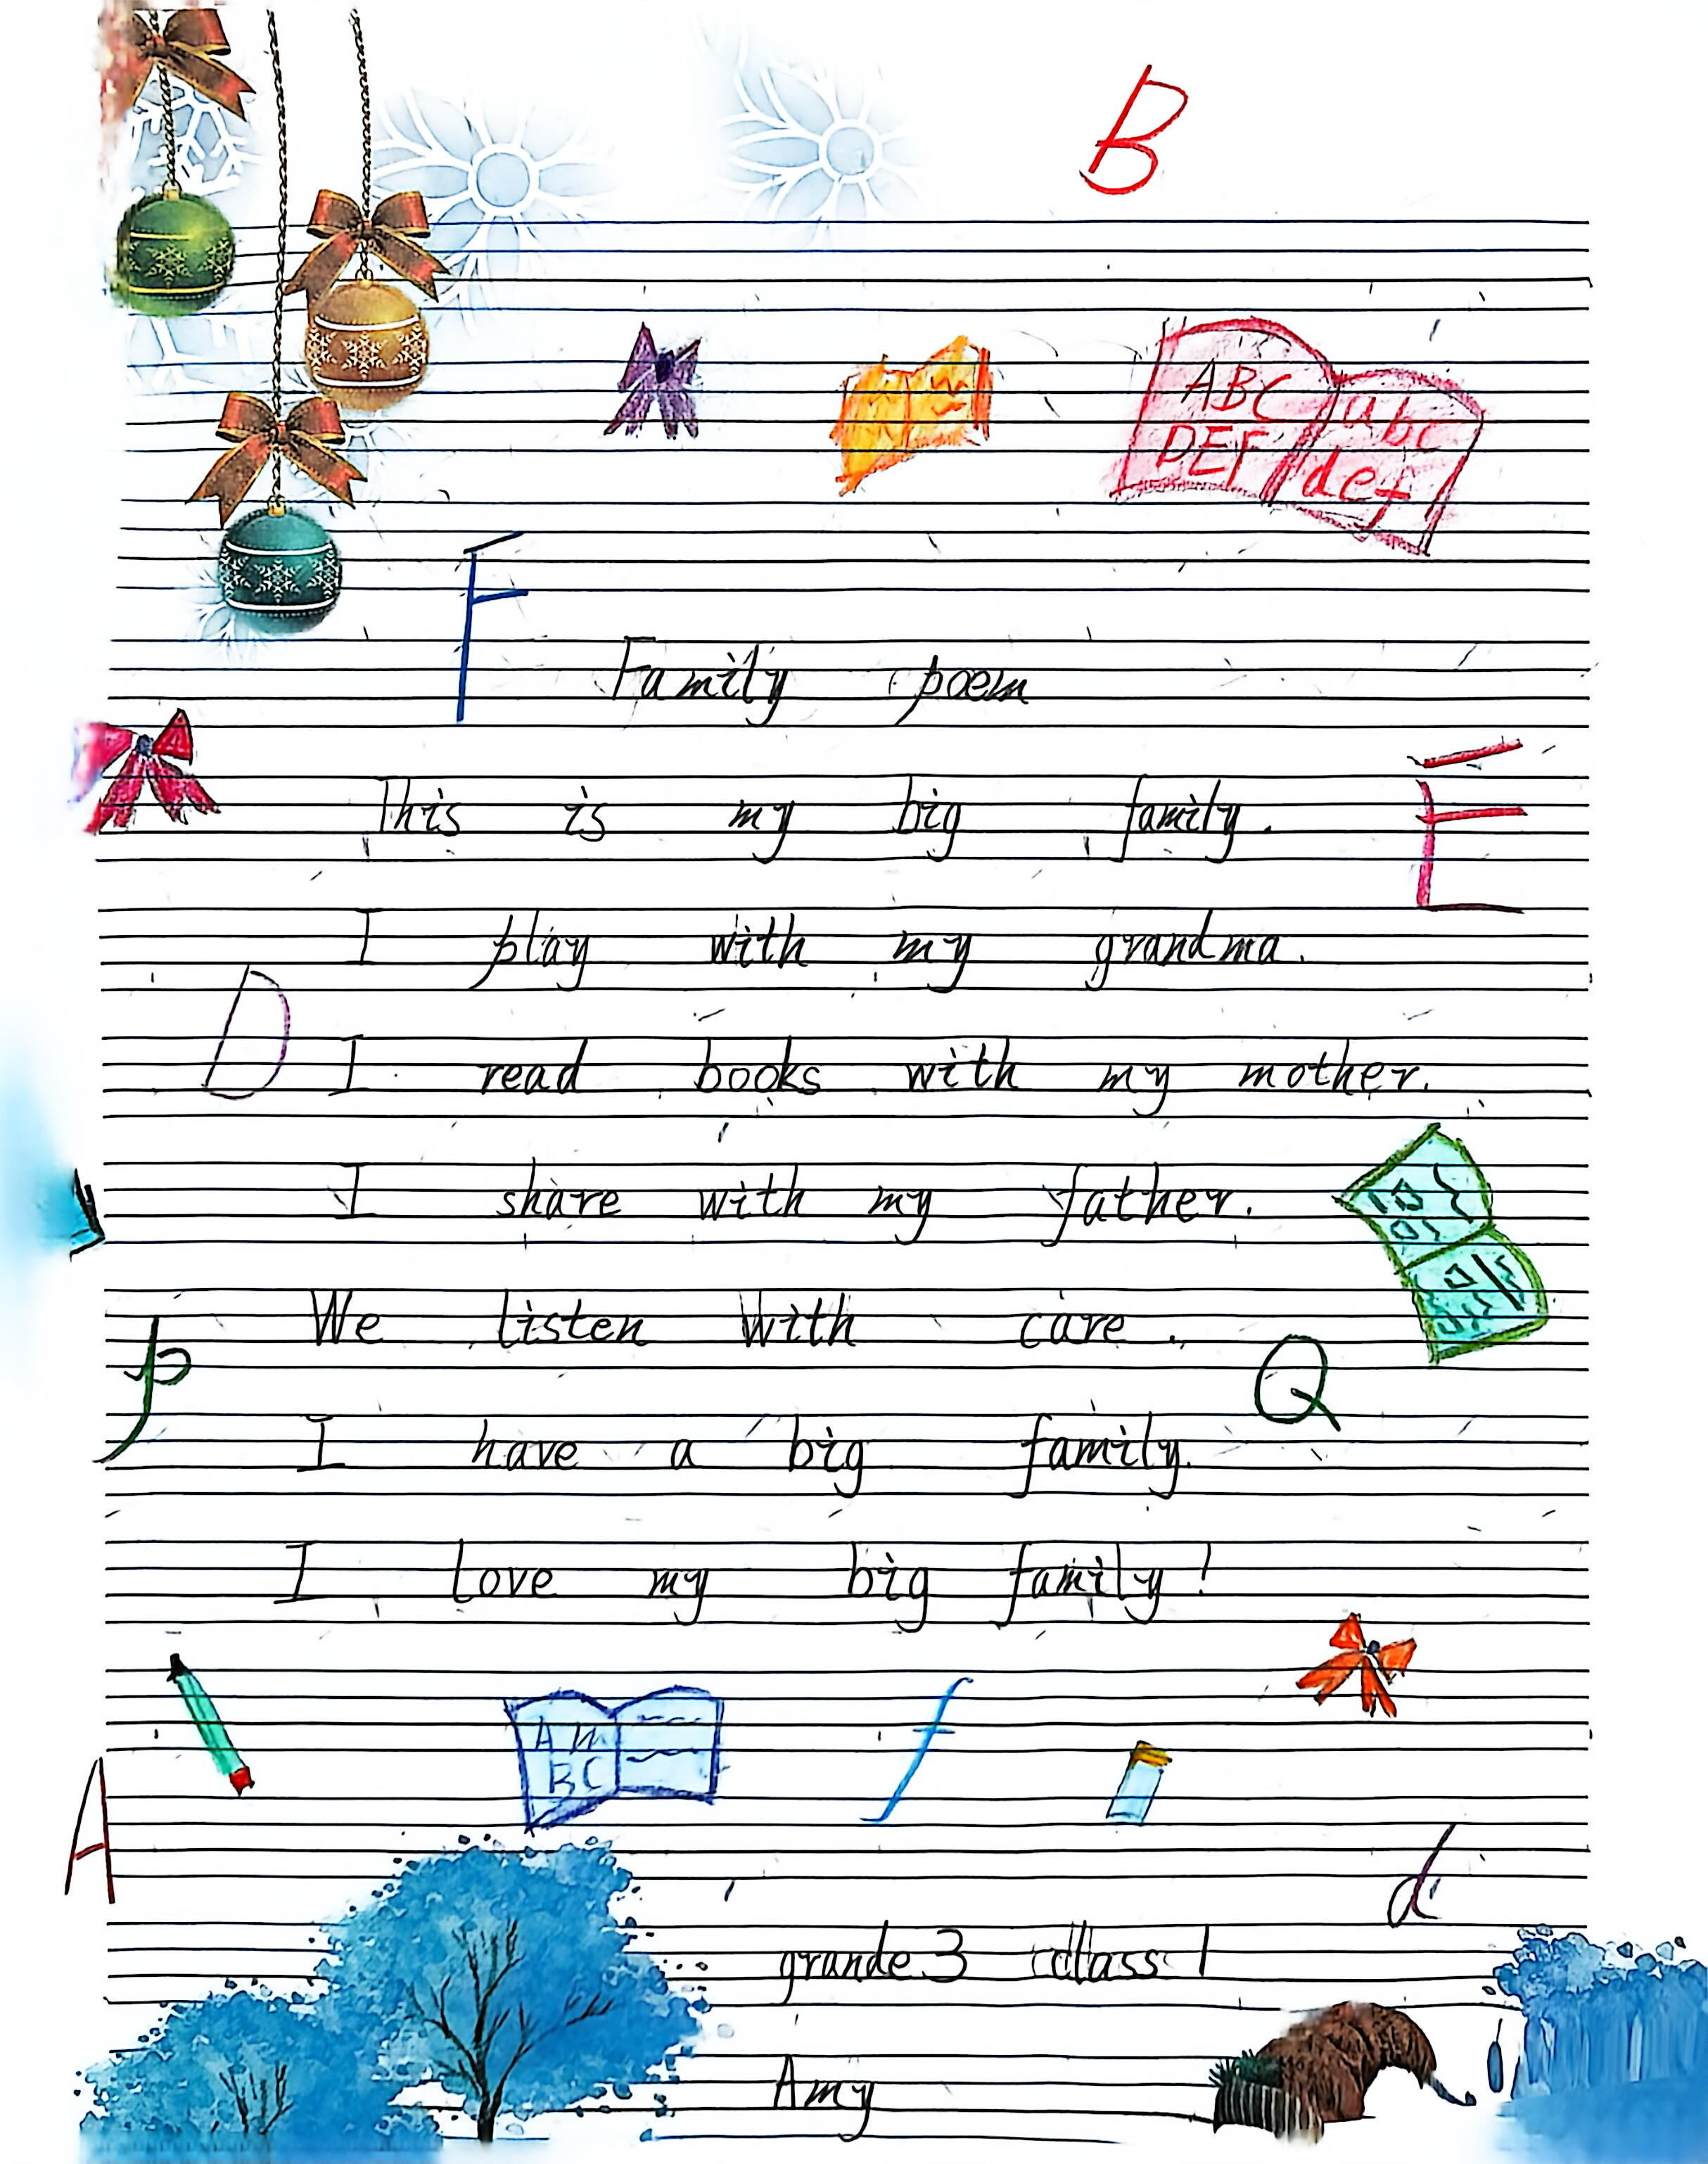 B
ABC abc
DEF def
F
Family poem
This is my big family.
E
I play with my grandma.
D
I read books with my mother.
I share with my father.
We listen With care.
p
Q
I have a big family.
I love my big family!
A
BC
f
A
d
grande 3 cdlass 1
Amy